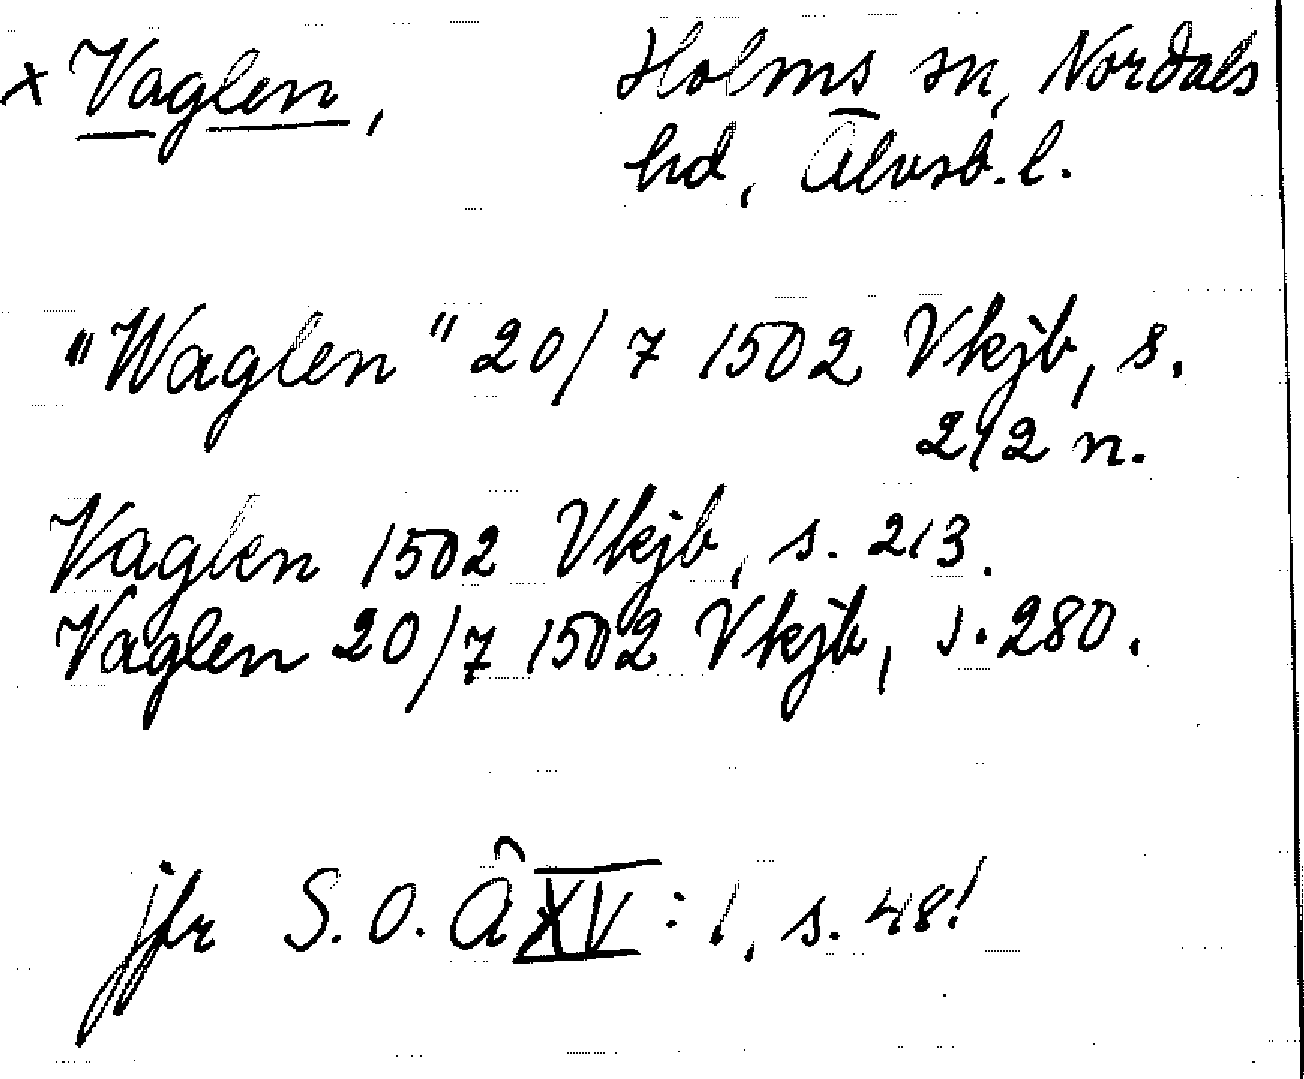 x Vaglen, Holms sn, Nordals
hd, Älvsb. l.
"Waglen" 20/7 1502 Vkjb, s.
212 n.
Vaglen 1502 Vkjb, s. 213.
Vaglen 20/7 1502 Vkjb, s. 280.
jfr S. O. Å XV : 1, s. 48!